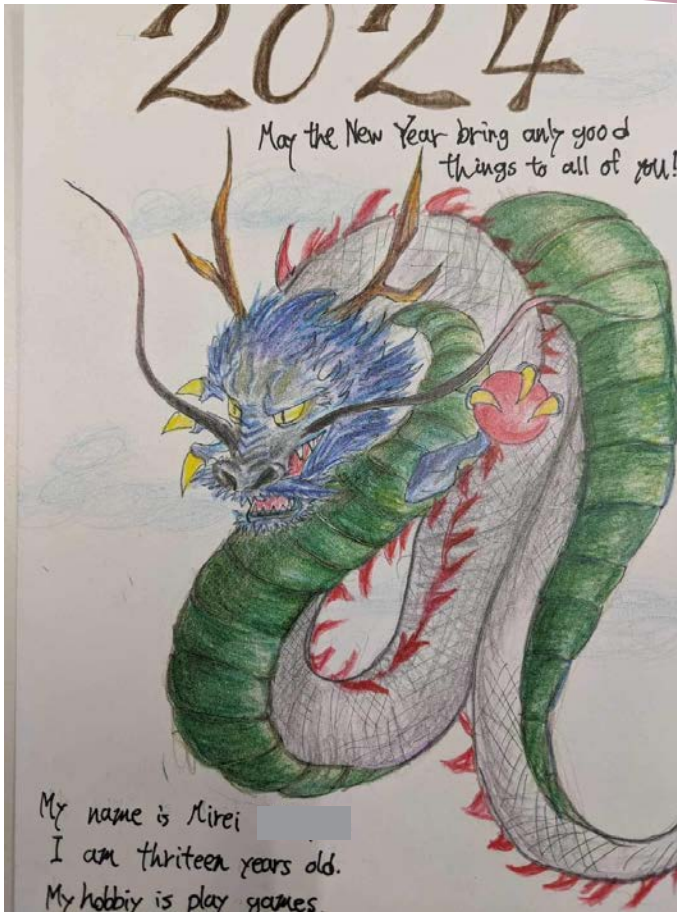 2024
May the New Year bring only good
things to all of you!
My name is Mirei
I am thriteen years old.
My hobbiy is play games.